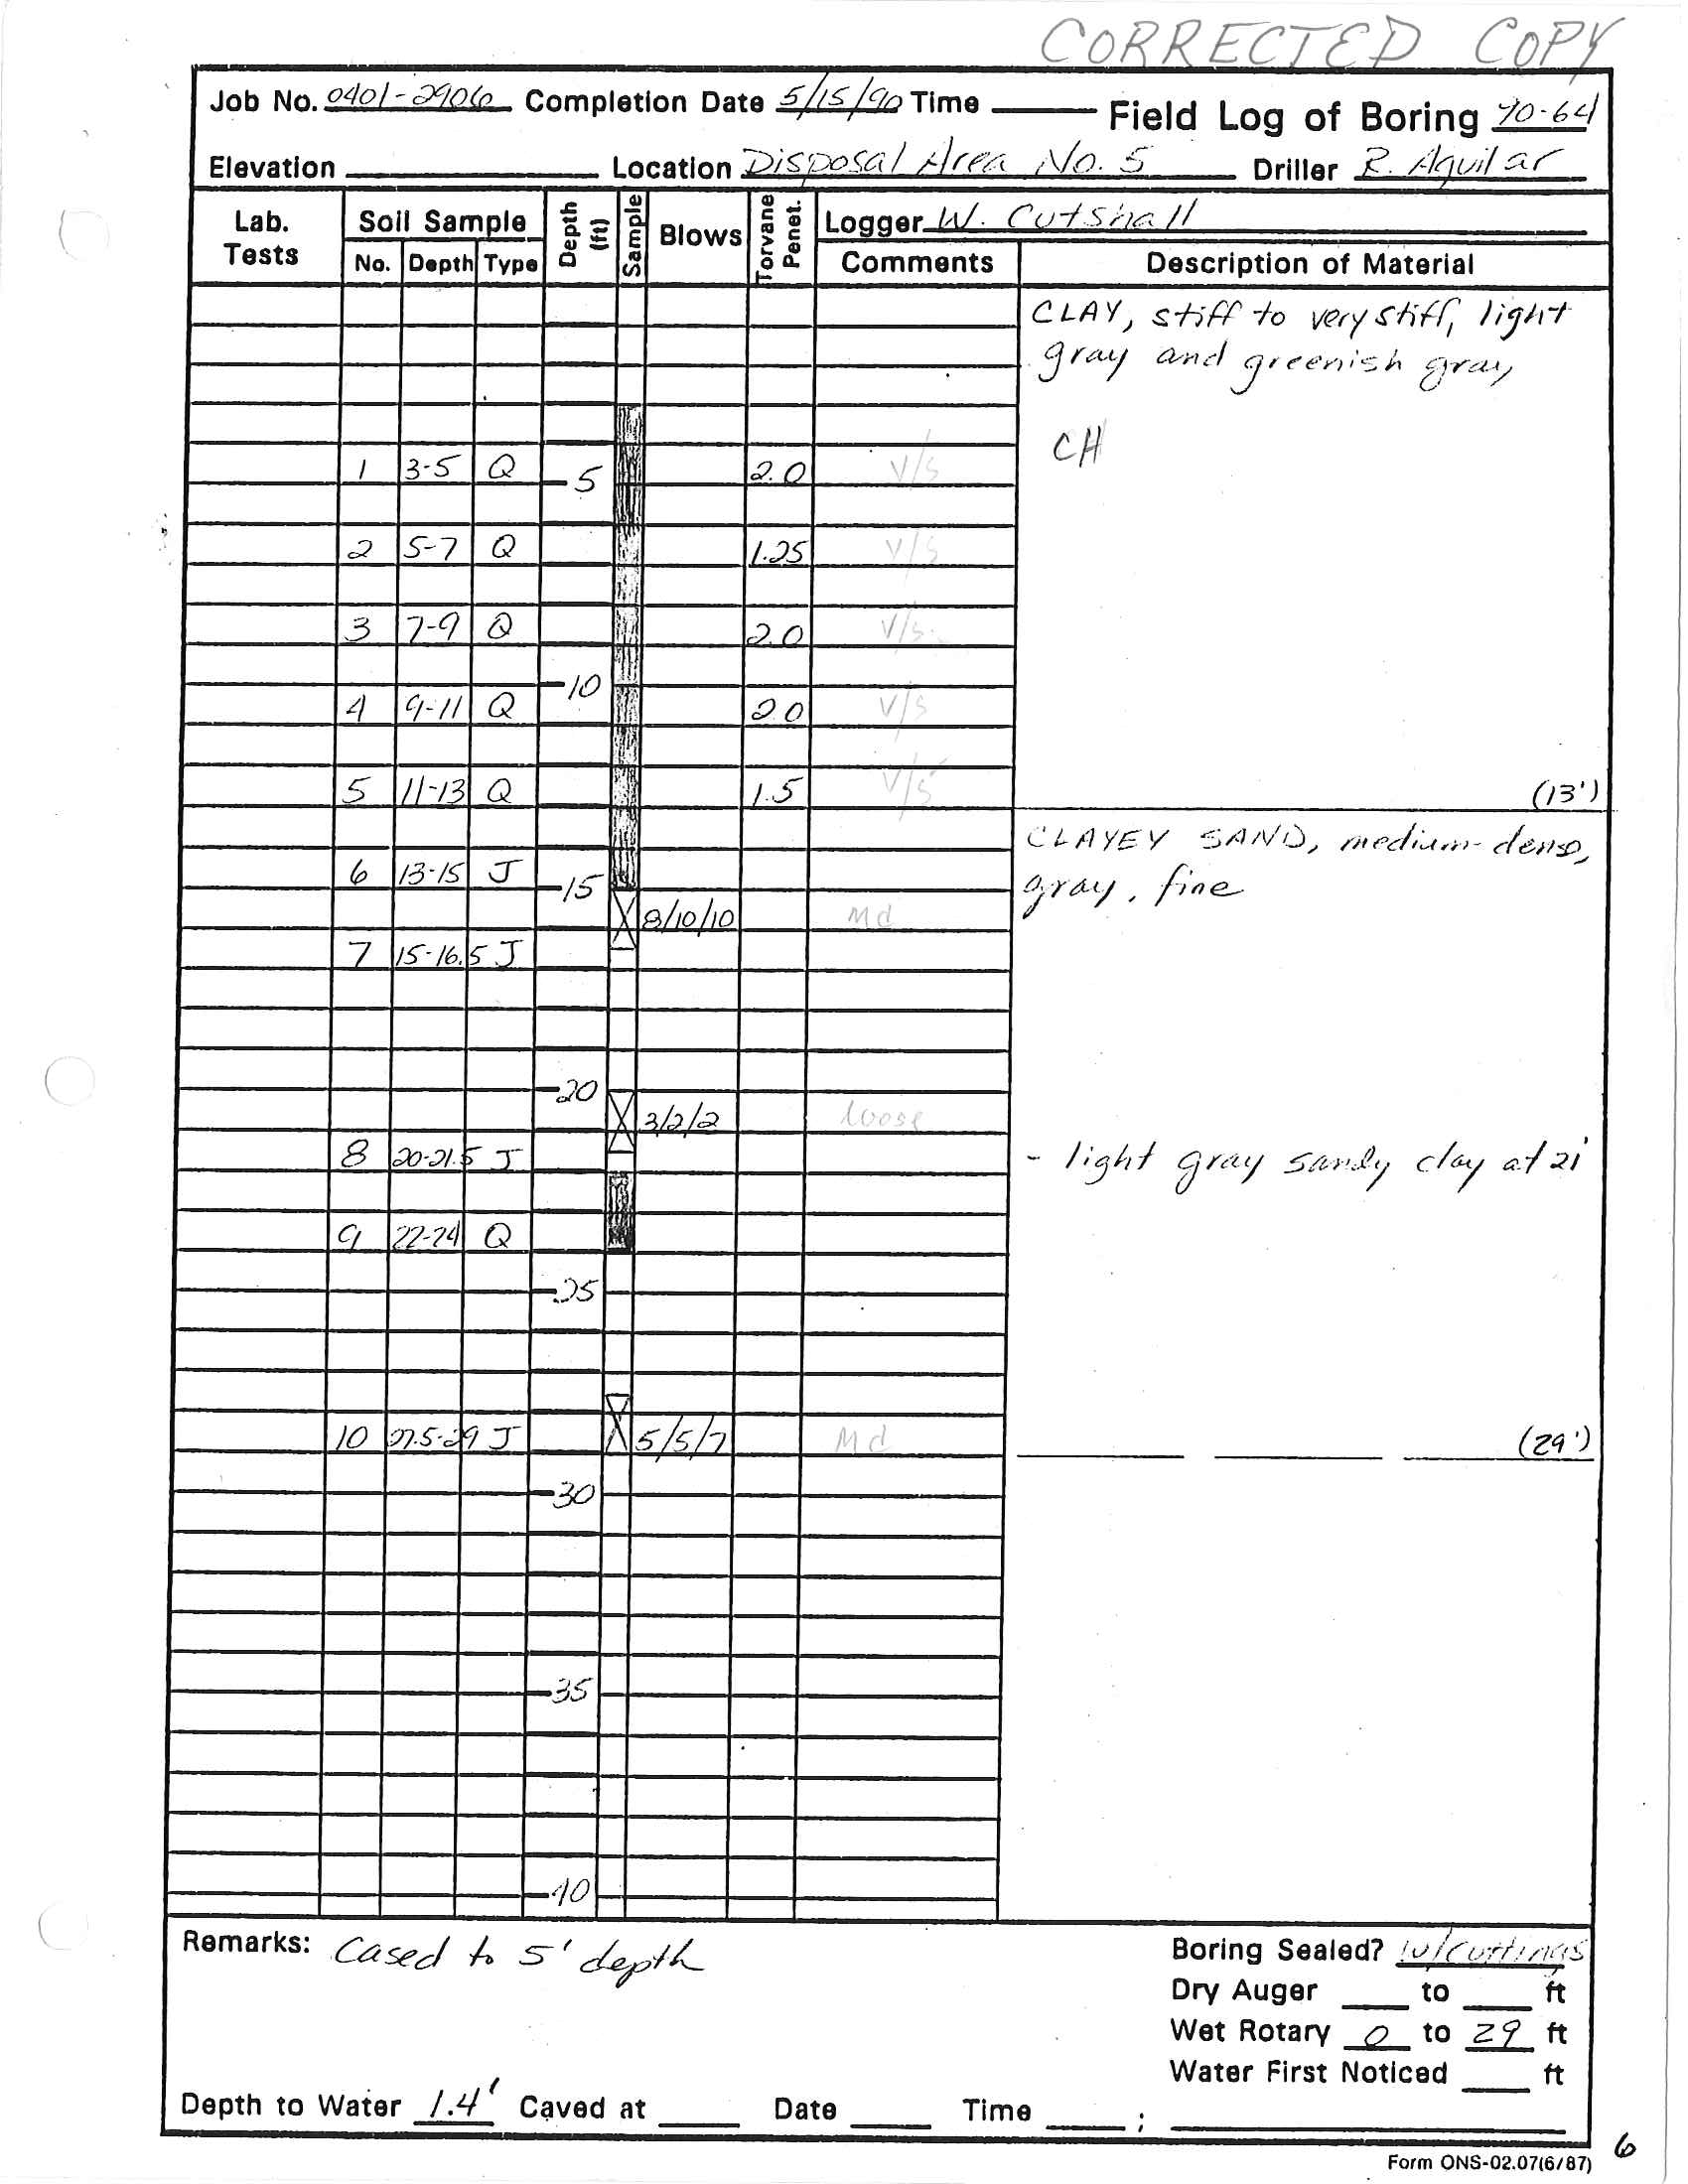 CORRECTED COPY
Job No. 0401-2906 Completion Date 5/15/90 Time Field Log of Boring 90-64
Elevation Location Disposal Area No. 5 Driller R. Aguilar
Lab. Tests Soil Sample Depth (ft) Sample Blows Torvane Penet. Logger W. Cutshall
No. Depth Type Comments Description of Material
CLAY, stiff to very stiff, light
gray and greenish gray
CH
1 3-5 Q 5 2.0 v/s
2 5-7 Q 1.25 v/s
3 7-9 Q 2.0 v/s
10
4 9-11 Q 2.0 v/s
5 11-13 Q 1.5 v/s (13')
CLAYEY SAND, medium-dense,
6 13-15 J 15 gray, fine
8/10/10 Md
7 15-16.5 J
20
3/2/2 loose
8 20-21.5 J - light gray sandy clay at 21'
9 22-24 Q
25
10 27.5-29 J 5/5/7 Md (29')
30
35
40
Remarks: Cased to 5' depth Boring Sealed? w/cuttings
Dry Auger to ft
Wet Rotary 0 to 29 ft
Water First Noticed ft
Depth to Water 1.4' Caved at Date Time ;
6
Form ONS-02.07(6/87)